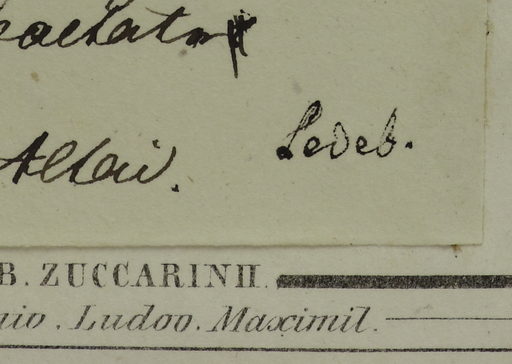 Altai. Ledeb.
B. ZUCCARINII.
nio. Ludov. Maximil.